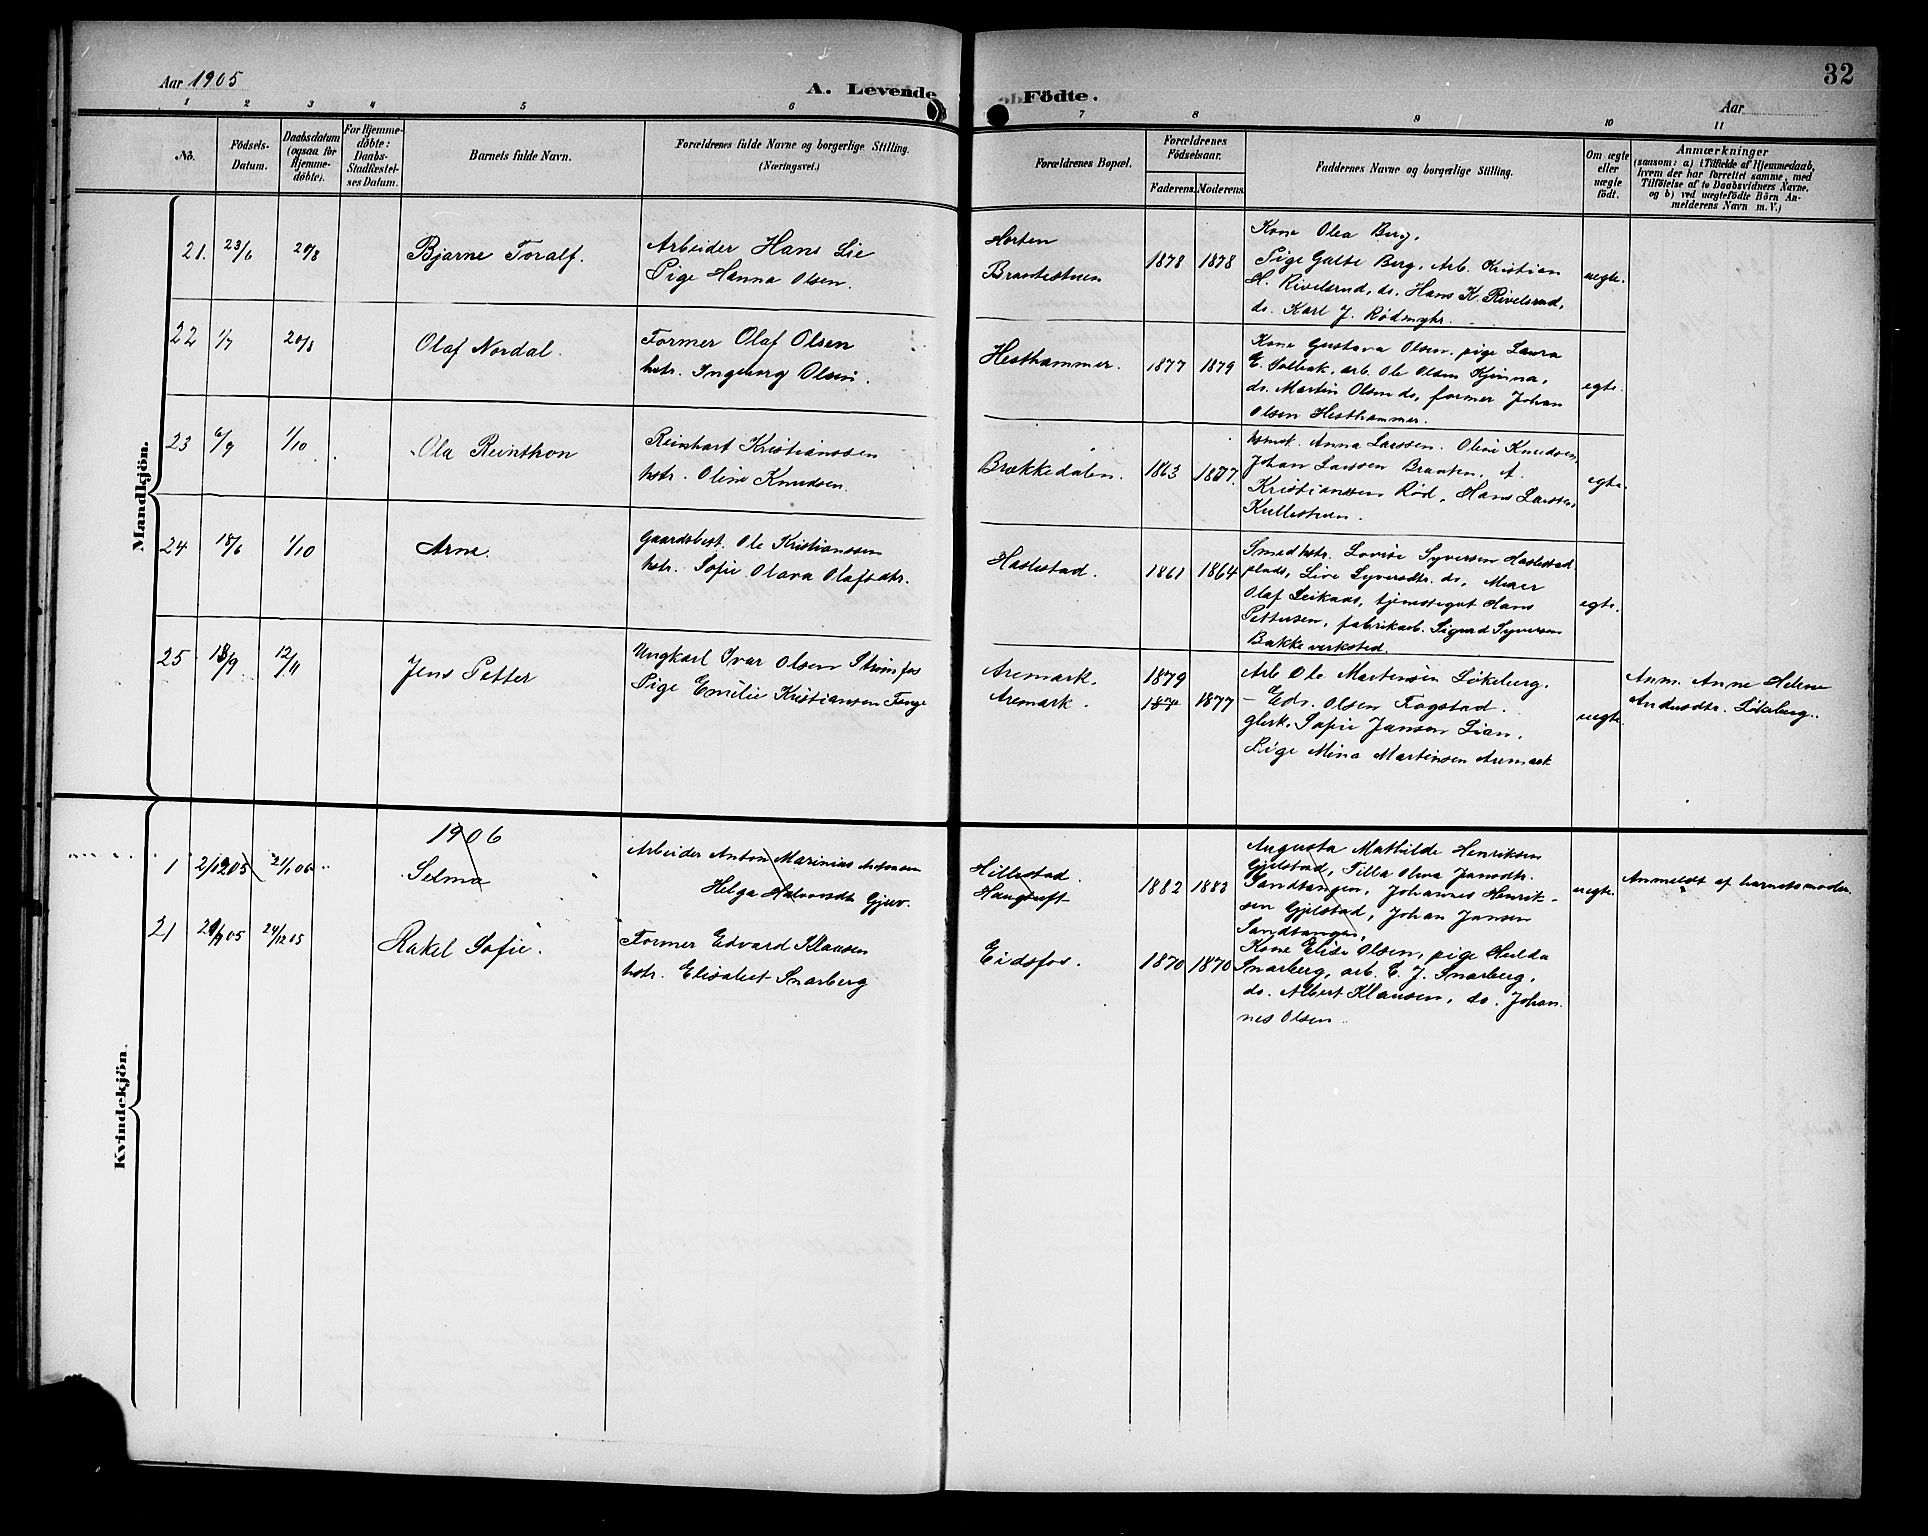 Aar 1905
A. Levende Födte.
32
Aar
1 2 3 4 5 6 7 8 9 10 11
No.
Födsels-Datum.
Daabsdatum (ogsaa for Hjemmedöbte).
For Hjemmedöbte: Daabs-Stadfestelses Datum.
Barnets fulde Navn.
Forældrenes fulde Navne og borgerlige Stilling. (Næringsvei.)
Forældrenes Bopæl.
Forældrenes Födselsaar.
Faderens. Moderens.
Faddernes Navne og borgerlige Stilling.
Om ægte eller uægte födt.
Anmærkninger
(saasom: a) i Tilfælde af Hjemmedaab, hvem der har forrettet samme, med Tilföielse af to Daabsvidners Navne. og b) ved uægtefödte Börn Anmelderens Navn m. V.)
Mandkjön.
21. 23/6 20/8 Bjarne Toralf.
Arbeider Hans Lie
Pige Hanna Olsen.
Horten
Braatestuen
1878 1878
Kone Olea Berg,
Pige Galte Berg, Arb. Kristian
H. Rivelsrud, ds. Hans K. Rivelsrud,
ds. Karl J. Rødmyhr.
uegte.
22 1/7 20/8 Olaf Nordal.
Former Olaf Olsen
hstr. Ingeborg Olsen.
Hesthammer.
1877 1879
Kone Gustava Olsen, pige Laura
E. Solbak, arb. Ole Olsen Kjønna,
ds. Martin Olsen ds, former Johan
Olsen Hesthammer.
egte.
23 6/9 1/10 Ola Reinthon
Reinhart Kristianssen
hstr. Oline Knudsen.
Brækkedalen.
1863 1877.
Anna Larssen. Oline Knudsen,
Johan Larssen Braaten, A.
Kristianssen Rød, Hans Larssen,
Kullestuen.
egte.
24 18/6 1/10 Arne.
Gaardsbest. Ole Kristianssen
hstr. Sofie Olava Olafsdtr.
Haslestad.
1861 1864
Smedhstr. Lovise Syversen Haslestad
plads, Live Syversdtr. ds, Murer
Olaf Leikaas, tjenestegut Hans
Pettersen, fabrikarb. Sigurd Syversen
Bakke verksted.
egte.
25 18/9 12/11 Jens Petter
Ungkarl Ivar Olsen Strømfos
Pige Emilie Kristiansen Tange
Aremark.
Aremark.
1879
187 1877
Arb Ole Martensen Løkeberg.
- Edv. Olsen Fogstad.
glsk. Sofie Jansen Lian.
Pige Mina Martinsen Aremark
uegte.
Anm. Anne Helene
Andersdtr. Løkeberg.
Kvindekjön.
1906
1 2/12 05 21/1 06 Selma
Arbeider Anton Marinius Antonsen
Helga Halvorsdtr Gjerv.
Hillestad.
Haugtuft
1882 1883
Augusta Mathilde Henriksen
Gjelstad, Tilla Oliva Jansdtr.
Sandtangen, Johannes Henrik-
sen Gjelstad, Johan Jansen
Sandtangen.
uegte.
Anmeldt af barnets moder.
21 29/9 05 24/12 05 Rakel Sofie.
Former Edvard Klausen
hstr. Elisabet Snarberg
Eidsfos.
1870 1870
Kone Elise Olsen, pige Hulda
Snarberg, arb. C. J. Snarberg,
ds. Albert Klausen, ds. Johan-
nes Olsen.